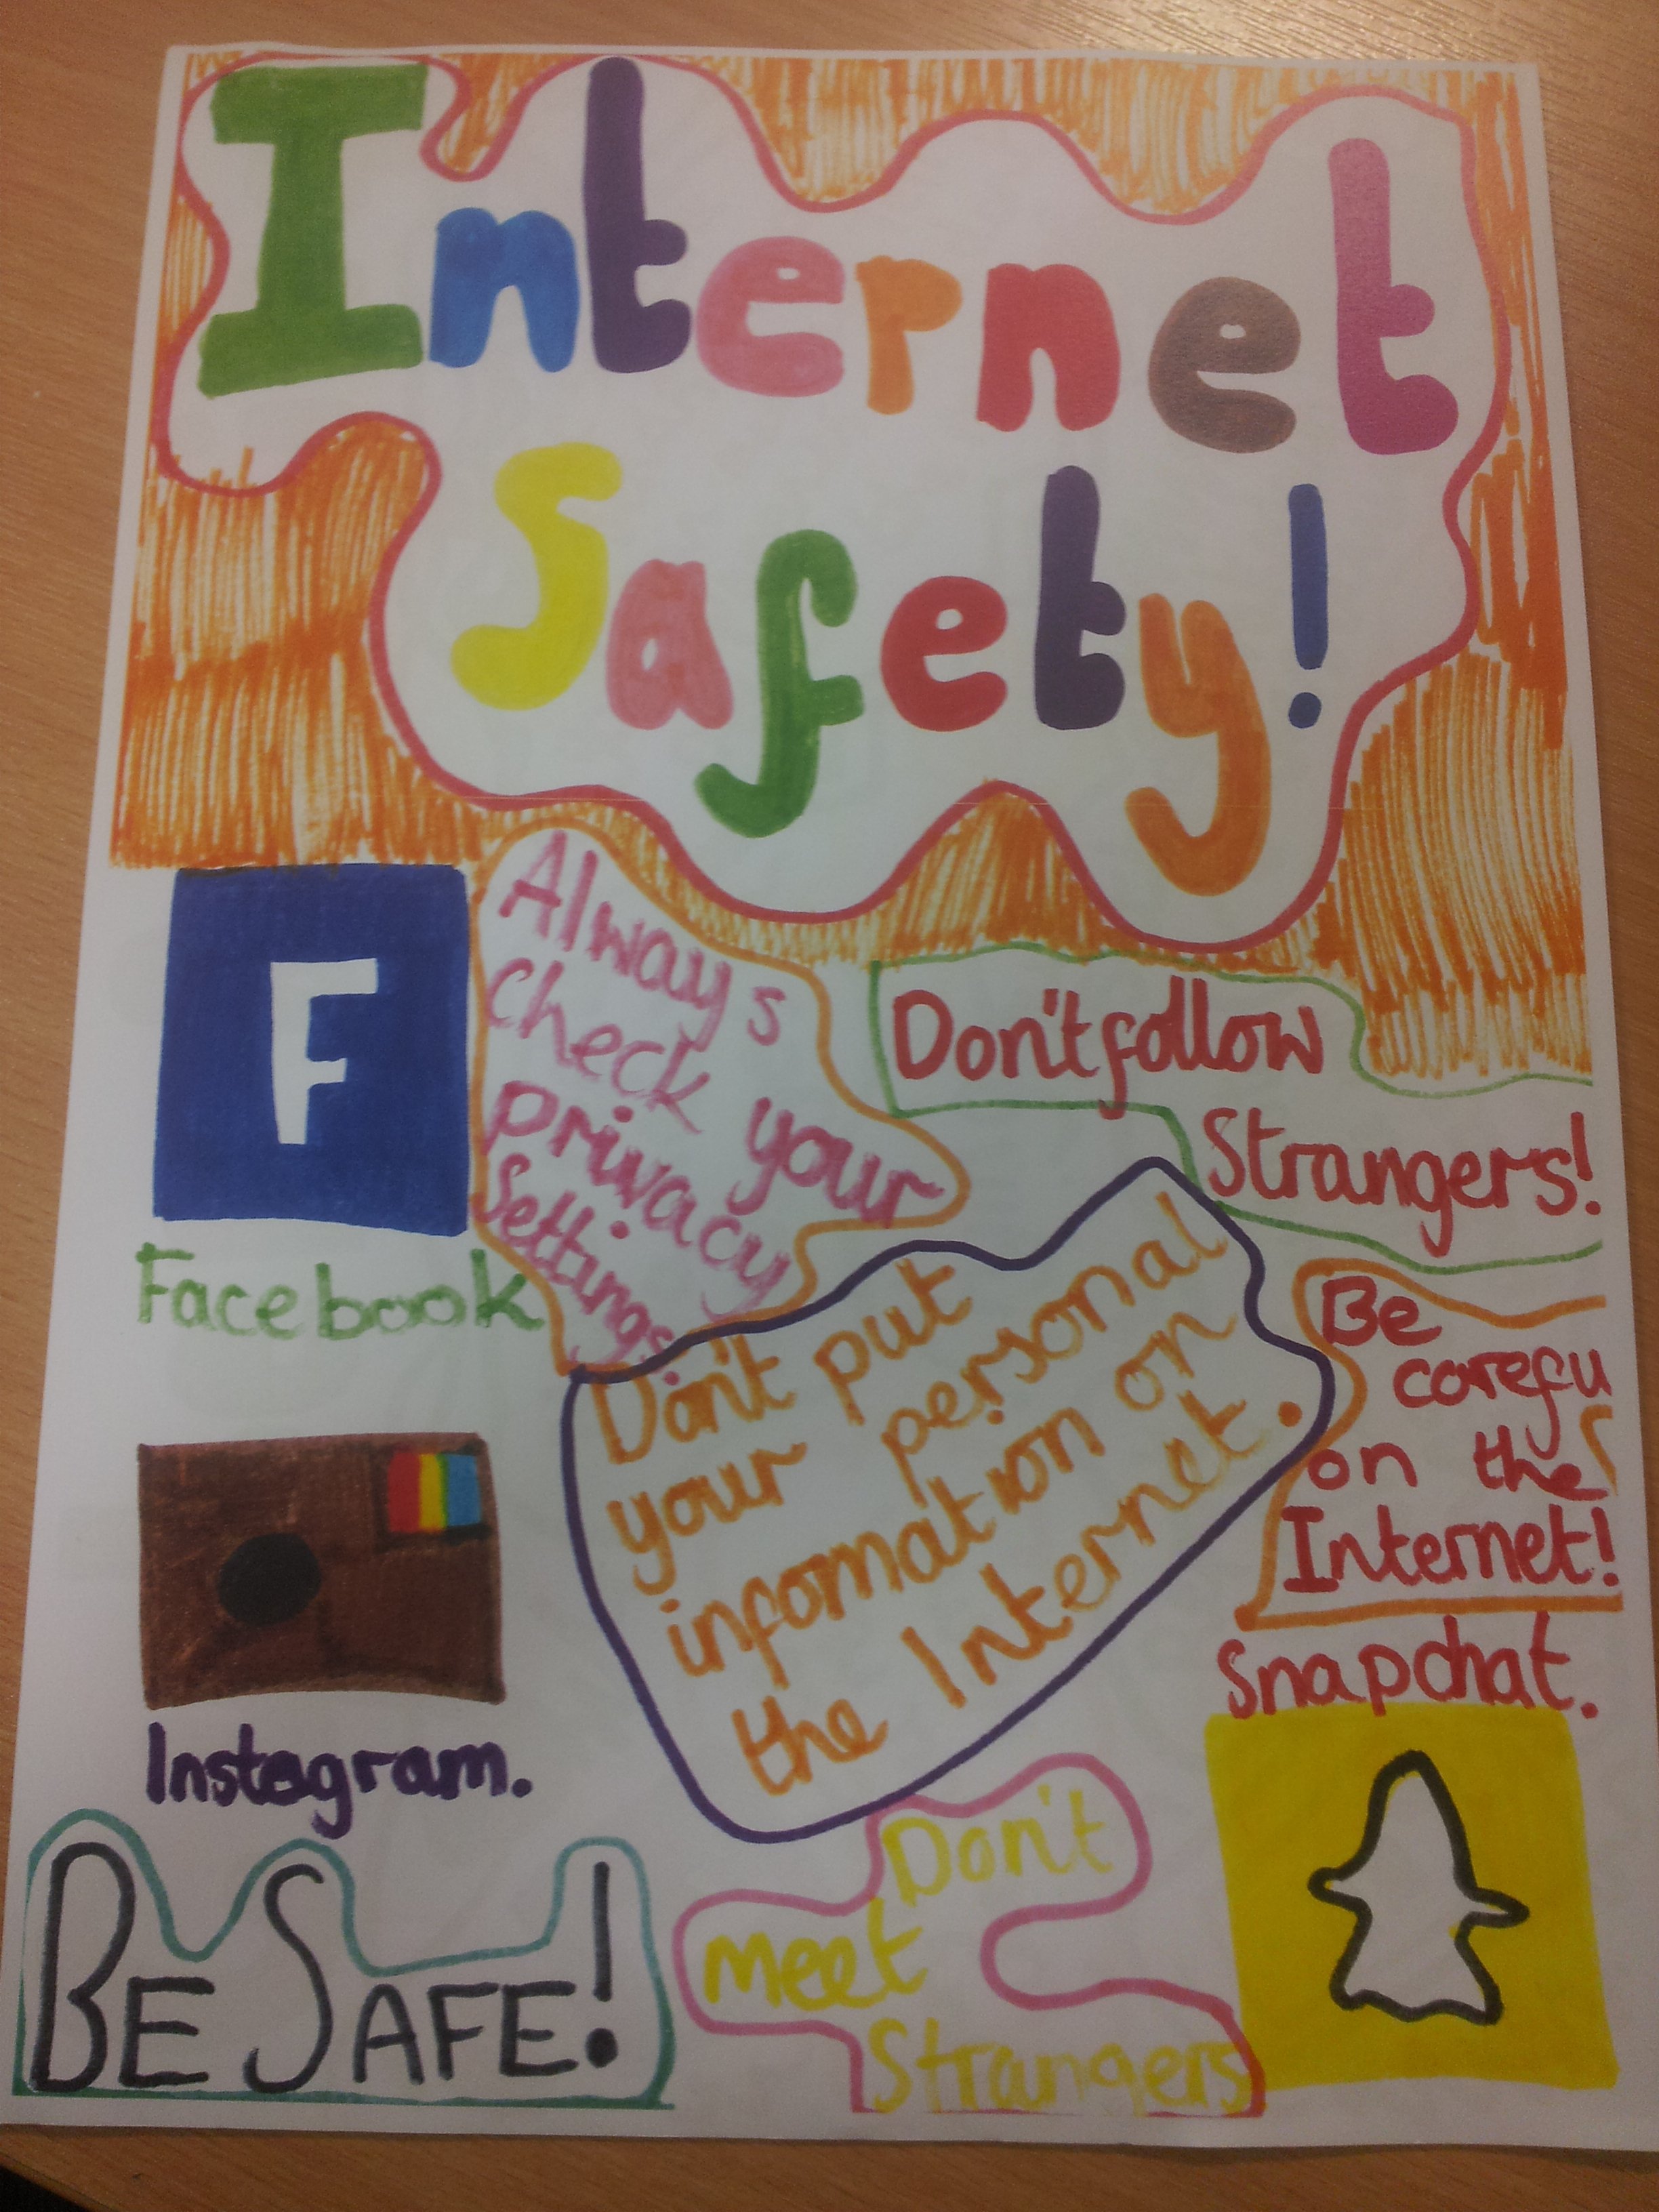 Internet
Safety!
F
Facebook
Always
check your
privacy
Settings.
Don't follow
Strangers!
Don't put
your personal
infomation on
the Internet.
Be
carefu
on the
Internet!
Snapchat.
Instagram.
BE SAFE!
Don't
meet
Strangers